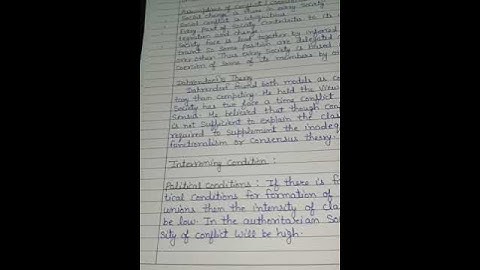 Assumptions of Conflict / Coercion
Social change is there in every Society
Social conflict is ubiquitous
Every part of Society contributes to its
tegration and change
Society force is held together by informed
traint ie Some position are delegated
over other. Thus every Society is based
coersion of some of its members by ot
Dahrendorf's Theory
Dahrendorf found both models as co
tary than competing. He hold the view
Society has two face a time conflict
Sensus. He believed that though con
is not Sufficient to explain the clas
required to Supplement the inadeq
functionalism or Consensus theory.
Intervening Condition :
Political conditions : If there is fa
tical Conditions for formation of
unions then the intensity of cla
be low. In the authoritarian So
sity of conflict will be high.